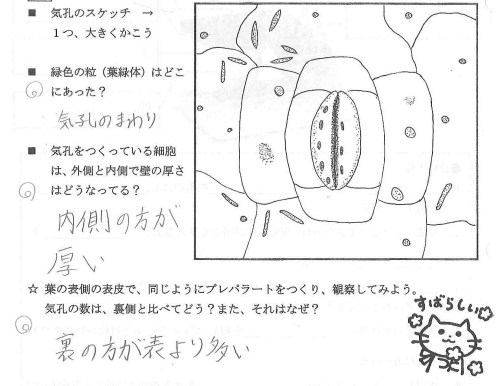 ■ 気孔のスケッチ →
１つ、大きくかこう
■ 緑色の粒（葉緑体）はどこ
にあった？
気孔のまわり
■ 気孔をつくっている細胞
は、外側と内側で壁の厚さ
はどうなってる？
内側の方が
厚い
☆ 葉の表側の表皮で、同じようにプレパラートをつくり、観察してみよう。
気孔の数は、裏側と比べてどう？また、それはなぜ？
すばらしい
裏の方が表より多い